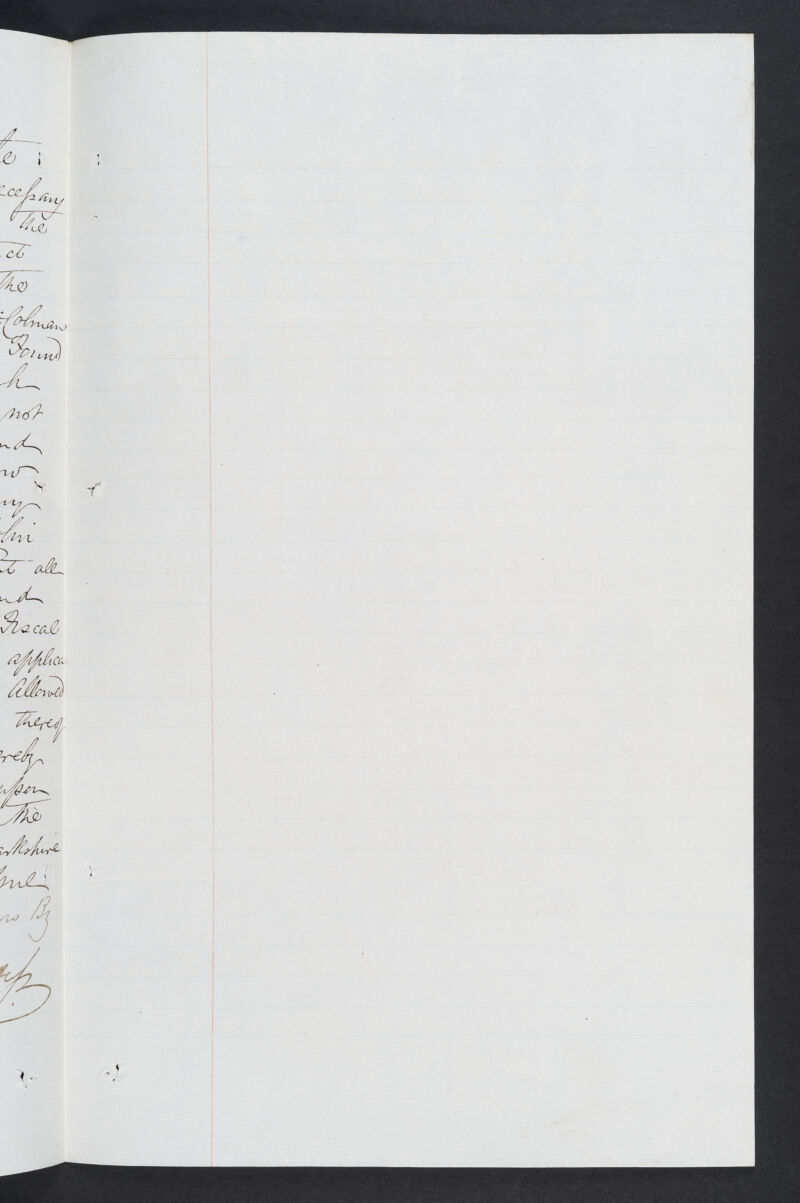 te :
ecessary
the
et
the
Colman
Found
h
not
nd
ow
ny
lin
t all
nd
Fiscal
applica
Allowed
thereof
ereby
upon
the
arkshire
By